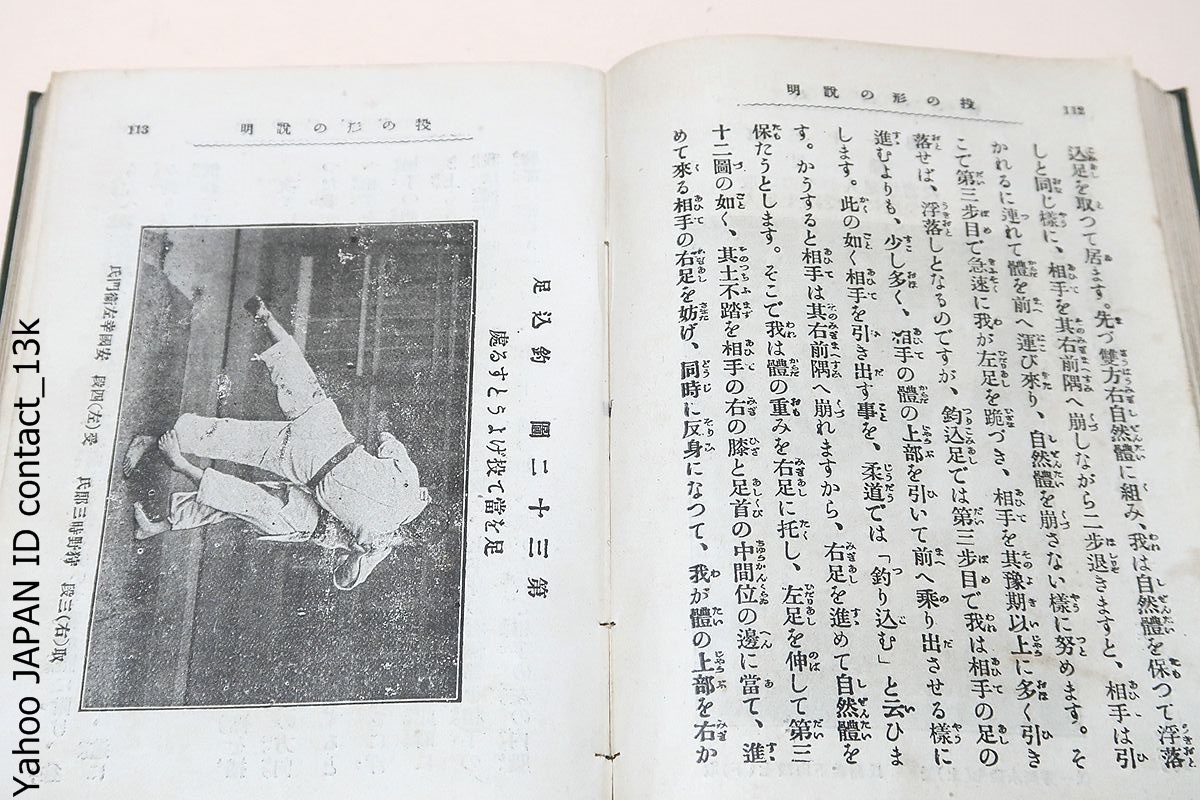 112
投の形の説明
込足を取つて居ます。先づ雙方右自然體に組み、我は自然體を保つて浮落
しと同じ様に、相手を其右前隅へ崩しながら二歩退きますと、相手は引
かれるに連れて體を前へ運び來り、自然體を崩さない様に努めます。そ
こで第三歩目で急速に我が左足を跪づき、相手を其豫期以上に多く引き
落せば、浮落しとなるのですが、釣込足では第三歩目で我は相手の足の
進むよりも、少し多く、相手の體の上部を引いて前へ乗り出させる様に
します。此の如く相手を引き出す事を、柔道では「釣り込む」と云ひま
す。かうすると相手は其右前隅へ崩れますから、右足を進めて自然體を
保たうとします。そこで我は體の重みを右足に托し、左足を伸して第三
十二圖の如く、其土不踏を相手の右の膝と足首の中間位の邊に當て、進
めて來る相手の右足を妨げ、同時に反身になつて、我が體の上部を右か
113
投の形の説明
第三十二圖 釣込足
足を當て投げようとする處
取(右)三段 狩野時三郎氏 受(左)四段 安國幸左衛門氏
Yahoo JAPAN ID contact_13k